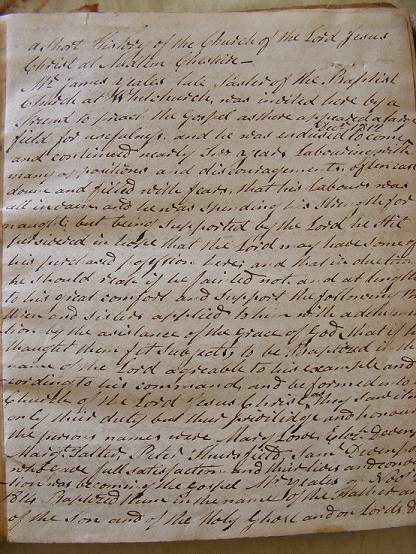 a short History of the Church of the Lord Jesus
Christ at Audlem Cheshire —
Mr James Yeales late Pastor of the Baptist
Church at Whitchurch, was invited here by a
friend to preach the Gospel as there appeared a large
field for usefulness, and he was enduised to come
Decr 1812
and continued nearly two years Labouring with
many oppositions and discouragements often cast
down and filled with fears, that his labours was
all in vain and he was spending his strength for
naught, but being supported by the Lord he still
persevered in hope that the Lord may have some of
his purchased possession here; and that in due time
he should reap if he fainted not, and at length
to his great comfort and support the following
and sisters applied to him with a
by the assistance of the grace of God that if he
thought them fit subjects to be Baptized in the
name of the Lord agreable to his example and
cording to his command, and be formed into a
Church of the Lord Jesus Christ, they saw it
only their duty but their priviledge and honour
the persons names were Mary Lowe,
Mary Peter Sam
gave full satisfaction and their lives and
tion was becoming the gospel Mr Yeales on
1814 Baptized them in the name of the Father
of the Son and of the Holy Ghost and on Lords